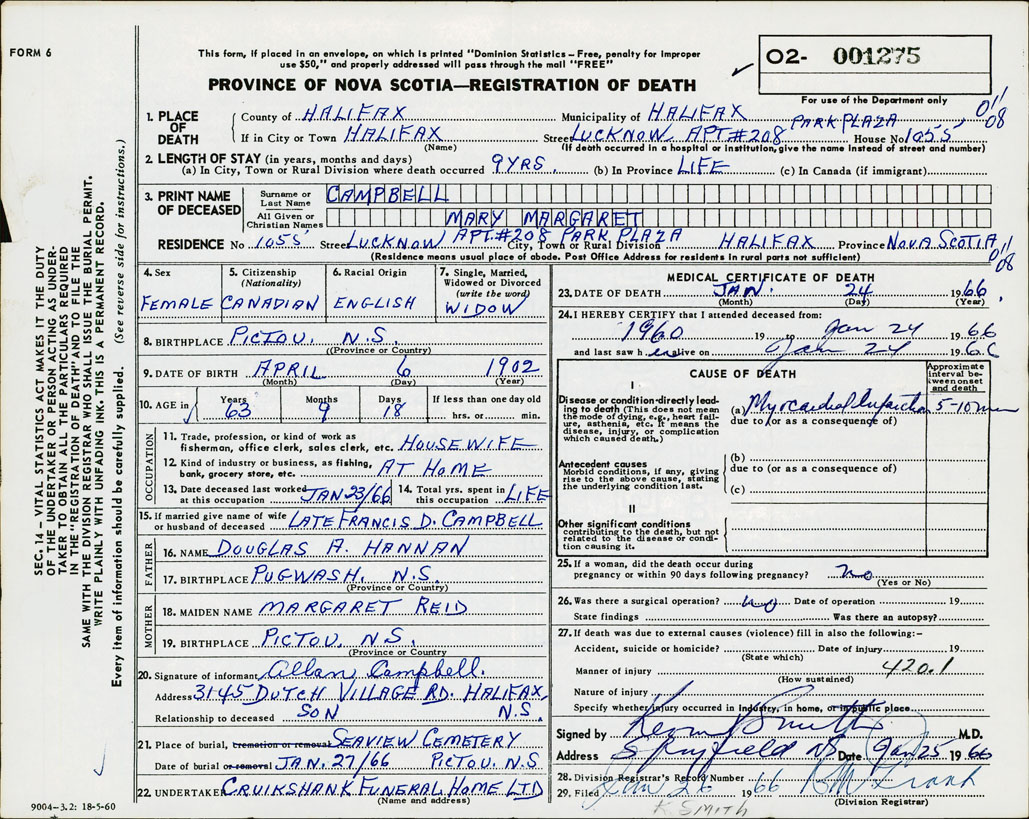 FORM 6
This form, if placed in an envelope, on which is printed "Dominion Statistics – Free, penalty for improper
use $50," and properly addressed will pass through the mail "FREE"
02- 001275
PROVINCE OF NOVA SCOTIA—REGISTRATION OF DEATH
For use of the Department only
1. PLACE OF DEATH
County of HALIFAX Municipality of HALIFAX 011 08
If in City or Town HALIFAX (Name) Street LUCKNOW APT #208 PARK PLAZA House No 1055
(If death occurred in a hospital or institution, give the name instead of street and number)
2. LENGTH OF STAY (in years, months and days)
(a) In City, Town or Rural Division where death occurred 9 YRS. (b) In Province LIFE (c) In Canada (if immigrant)
3. PRINT NAME OF DECEASED
Surname or Last Name CAMPBELL
All Given or Christian Names MARY MARGARET
RESIDENCE No 1055 Street LUCKNOW APT. #208 PARK PLAZA City, Town or Rural Division HALIFAX Province NOVA SCOTIA
(Residence means usual place of abode. Post Office Address for residents in rural parts not sufficient)
011 08
4. Sex FEMALE
5. Citizenship (Nationality) CANADIAN
6. Racial Origin ENGLISH
7. Single, Married, Widowed or Divorced (write the word) WIDOW
8. BIRTHPLACE PICTOU. N.S.
(Province or Country)
9. DATE OF BIRTH APRIL 6 1902
(Month) (Day) (Year)
10. AGE in Years 63 Months 9 Days 18 If less than one day old
hrs. or min.
OCCUPATION
11. Trade, profession, or kind of work as
fisherman, office clerk, sales clerk, etc. HOUSEWIFE
12. Kind of industry or business, as fishing,
bank, grocery store, etc. AT HOME
13. Date deceased last worked
at this occupation JAN 23/66
14. Total yrs. spent in
this occupation LIFE
15. If married give name of wife
or husband of deceased LATE FRANCIS D. CAMPBELL
FATHER
16. NAME DOUGLAS A. HANNAN
17. BIRTHPLACE PUGWASH. N.S.
(Province or Country)
MOTHER
18. MAIDEN NAME MARGARET REID
19. BIRTHPLACE PICTOU. N.S.
(Province or Country)
20. Signature of informant Allan Campbell.
Address 3145 DUTCH VILLAGE RD. HALIFAX, N.S.
Relationship to deceased SON
21. Place of burial, cremation or removal SEAVIEW CEMETERY
Date of burial or removal JAN. 27/66 PICTOU. N.S
22. UNDERTAKER CRUIKSHANK FUNERAL HOME LTD
(Name and address)
MEDICAL CERTIFICATE OF DEATH
23. DATE OF DEATH JAN. 24 1966
(Month) (Day) (Year)
24. I HEREBY CERTIFY that I attended deceased from:
1960 19 to Jan 24 1966
and last saw her alive on Jan 24 1966
CAUSE OF DEATH
Approximate interval between onset and death
I
Disease or condition directly leading to death (This does not mean the mode of dying, e.g., heart failure, asthenia, etc. It means the disease, injury, or complication which caused death.)
(a) Myocardial Infarction 5-10 min
due to (or as a consequence of)
Antecedent causes
Morbid conditions, if any, giving rise to the above cause, stating the underlying condition last.
(b)
due to (or as a consequence of)
(c)
II
Other significant conditions
contributing to the death, but not related to the disease or condition causing it.
25. If a woman, did the death occur during
pregnancy or within 90 days following pregnancy? no
(Yes or No)
26. Was there a surgical operation? no Date of operation 19
State findings Was there an autopsy?
27. If death was due to external causes (violence) fill in also the following:–
Accident, suicide or homicide? Date of injury 19
(State which)
Manner of injury 420.1
(How sustained)
Nature of injury
Specify whether injury occurred in industry, in home, or in public place
Signed by Kevin Smith M.D.
Address Spryfield NS Date Jan 25 1966
28. Division Registrar's Record Number
29. Filed Jan 26 1966
(Division Registrar)
K. SMITH
SEC. 14 – VITAL STATISTICS ACT MAKES IT THE DUTY
OF THE UNDERTAKER OR PERSON ACTING AS UNDER-
TAKER TO OBTAIN ALL THE PARTICULARS REQUIRED
IN THE "REGISTRATION OF DEATH" AND TO FILE THE
SAME WITH THE DIVISION REGISTRAR WHO SHALL ISSUE THE BURIAL PERMIT.
WRITE PLAINLY WITH UNFADING INK. THIS IS A PERMANENT RECORD.
Every item of information should be carefully supplied. (See reverse side for instructions.)
9004–3.2: 18-5-60